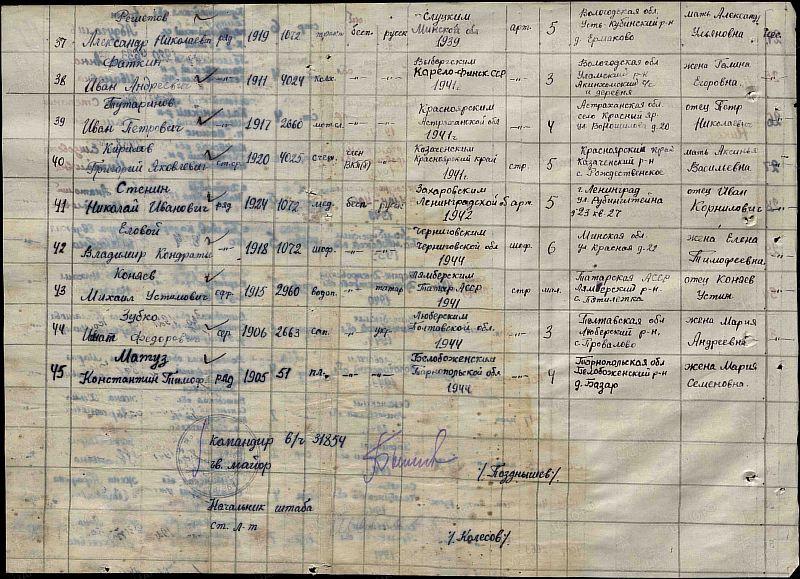 37 Решетов Александр Николаевич ряд 1919 1072 тракт бесп. русск Слуцким Минской обл 1939 арт. 5 Вологодская обл. Усть-Кубинский р-н д. Ермаково мать Александ Ульяновна
38 Фаткин Иван Андреевич -"- 1911 4024 колх. -"- -"- Выборгским Карело-Финск ССР 1941г. -"- 3 Вологодская обл р-н и деревня жена Галина Егоровна.
39 Тутаринов Иван Петрович -"- 1917 2660 мот сл. -"- -"- Красноярским Астраханской обл 1941г -"- 4 Астраханская обл. село Красный яр. ул Ворошилова д.20 отец Петр Николаевич
40 Кирилов Григорий Яковлевич ст-ер. 1920 4025 счет. член ВКП(б) -"- Казаченским Красноярский край 1941г. стр. 5 Красноярский край Казаченский р-н с. Рождественское мать Аксинья Васильевна
41 Стенин Николай Иванович ряд 1924 1072 мед. бесп русск Захаровским Ленинградской об 1942 арт. 5 г. Ленинград ул Рубинштейна д23 кв. 27 отец Иван Корнилович
42 Еловой Владимир Кондрать -"- 1918 1072 шоф. -"- -"- Черниговским Черниговской обл 1944 шоф. 6 Минская обл. ул Красная д.22 жена Елена Тимофеевна.
43 Коняев Михаил Устимович 1915 2960 водоп. -"- татар Лямберским Татар. АССР 1941 стр мил. Татарская АССР Лямберский р-н. с. Потилетка отец Коняев Устин
44 Зубко Игнат Федорович 1906 2663 сап. -"- укр Люберским Полтавской обл. 1944 -"- 3 Полтавская обл. Люберский р-н. с. Провалово жена Мария Андреевна
45 Матуз Константин Тимоф. ряд 1905 51 пл. -"- -"- Белобоженским Тарнопольской обл 1944 -"- 4 Тарнопольская обл Белобоженский р-н д. Базар жена Мария Семеновна.
Командир в/ч 31854
гв. майор /Позднышев/.
Начальник штаба
ст. л-т /Колесов/.